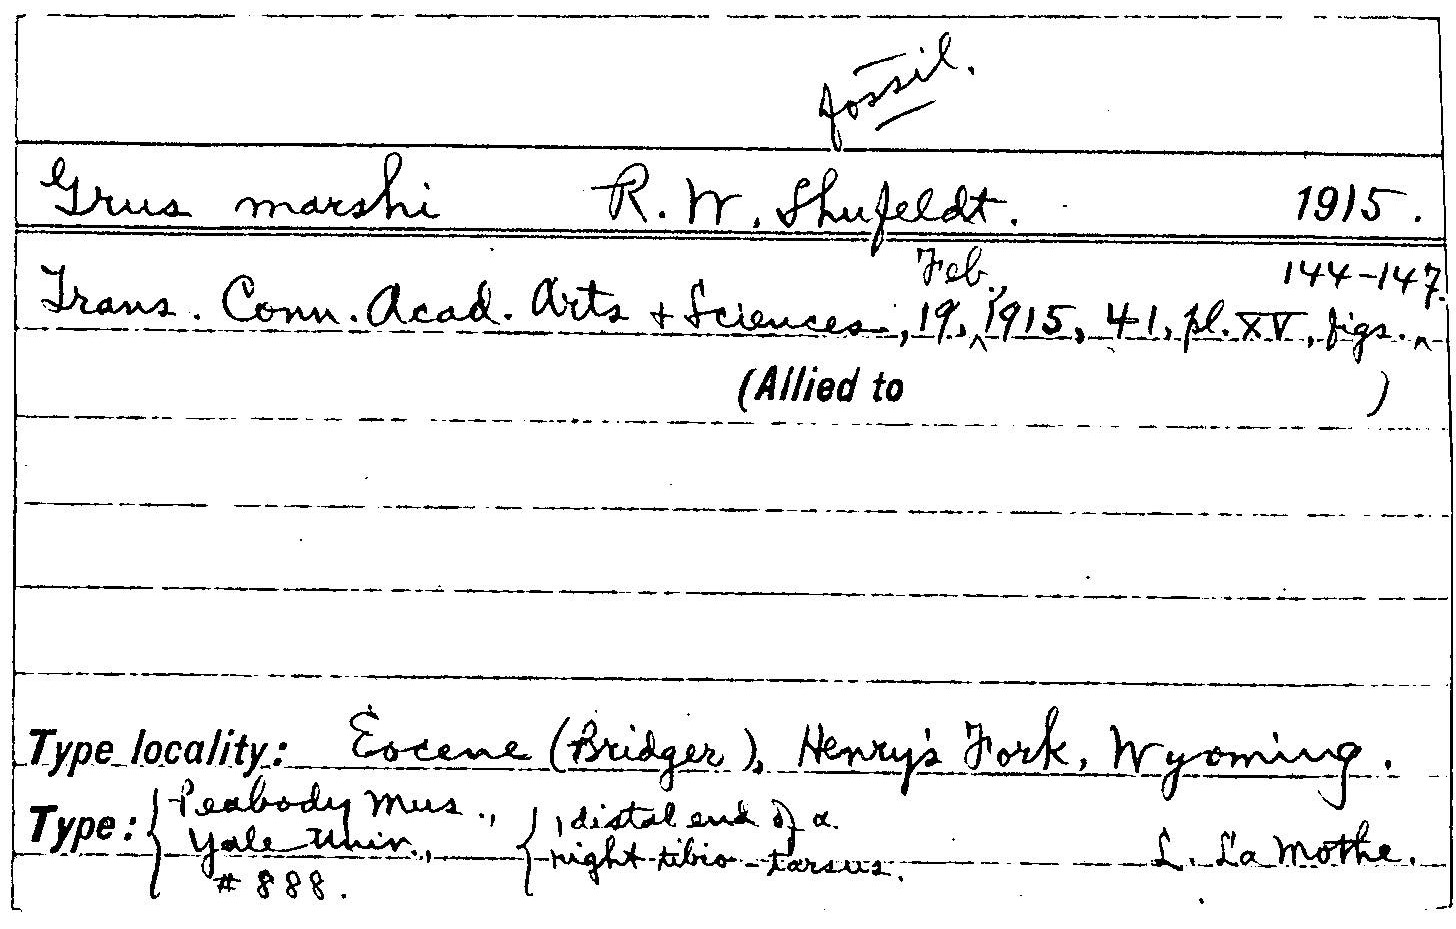 fossil.
Grus marshi R. W. Shufeldt. 1915.
Trans. Conn. Acad. Arts + Sciences, 19, Feb., 1915, 41, pl. XV, figs. 144-147.
(Allied to )
Type locality: Eocene (Bridger), Henry's Fork, Wyoming.
Type: { Peabody Mus., { distal end of a
Yale Univ., right tibio-tarsus. L. La Mothe.
# 888.